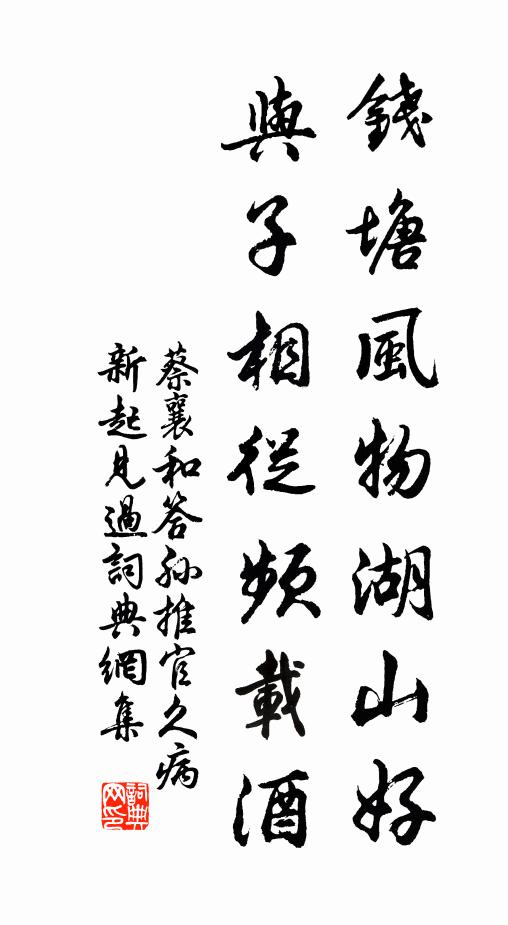 錢塘風物湖山好
與子相從頻載酒
蔡襄和答孙推官久病
新起見過詞典網集
詞典
网印